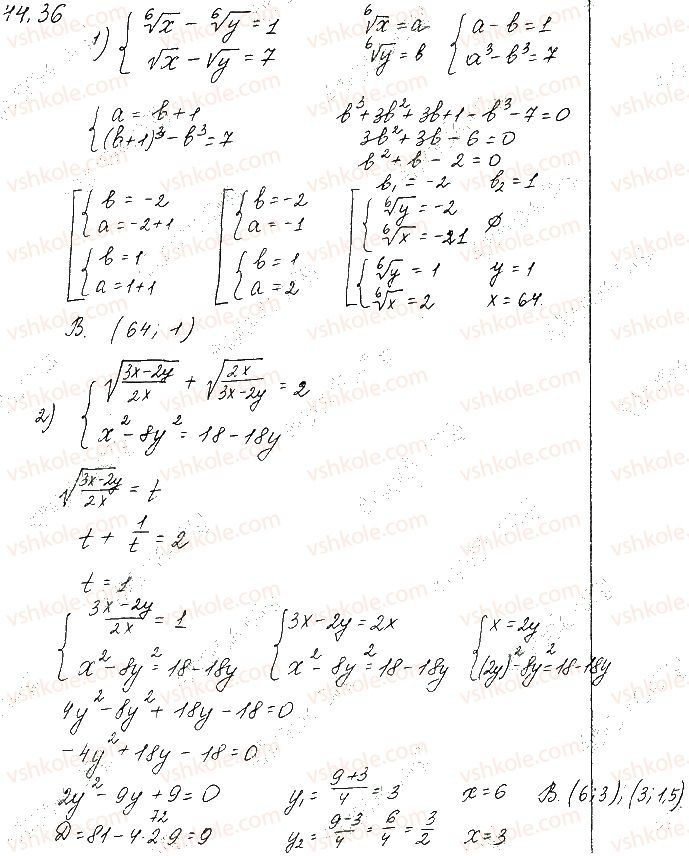 44.36
1) { ⁶√x − ⁶√y = 1
√x − √y = 7
⁶√x = a
⁶√y = b
{ a − b = 1
a³ − b³ = 7
{ a = b + 1
(b+1)³ − b³ = 7
b³ + 3b² + 3b + 1 − b³ − 7 = 0
3b² + 3b − 6 = 0
b² + b − 2 = 0
b₁ = −2 b₂ = 1
[ { b = −2
a = −2+1
{ b = 1
a = 1+1
[ { b = −2
a = −1
{ b = 1
a = 2
[ { ⁶√y = −2
⁶√x = −21 ∅
{ ⁶√y = 1 y = 1
⁶√x = 2 x = 64
В. (64; 1)
2) { √((3x−2y)/(2x)) + √((2x)/(3x−2y)) = 2
x² − 8y² = 18 − 18y
√((3x−2y)/(2x)) = t
t + 1/t = 2
t = 1
{ (3x−2y)/(2x) = 1
x² − 8y² = 18 − 18y
{ 3x − 2y = 2x
x² − 8y² = 18 − 18y
{ x = 2y
(2y)² − 8y² = 18 − 18y
4y² − 8y² + 18y − 18 = 0
−4y² + 18y − 18 = 0
2y² − 9y + 9 = 0 y₁ = (9+3)/4 = 3 x = 6 В. (6; 3), (3; 1,5)
72
D = 81 − 4·2·9 = 9 y₂ = (9−3)/4 = 6/4 = 3/2 x = 3
vshkole.com